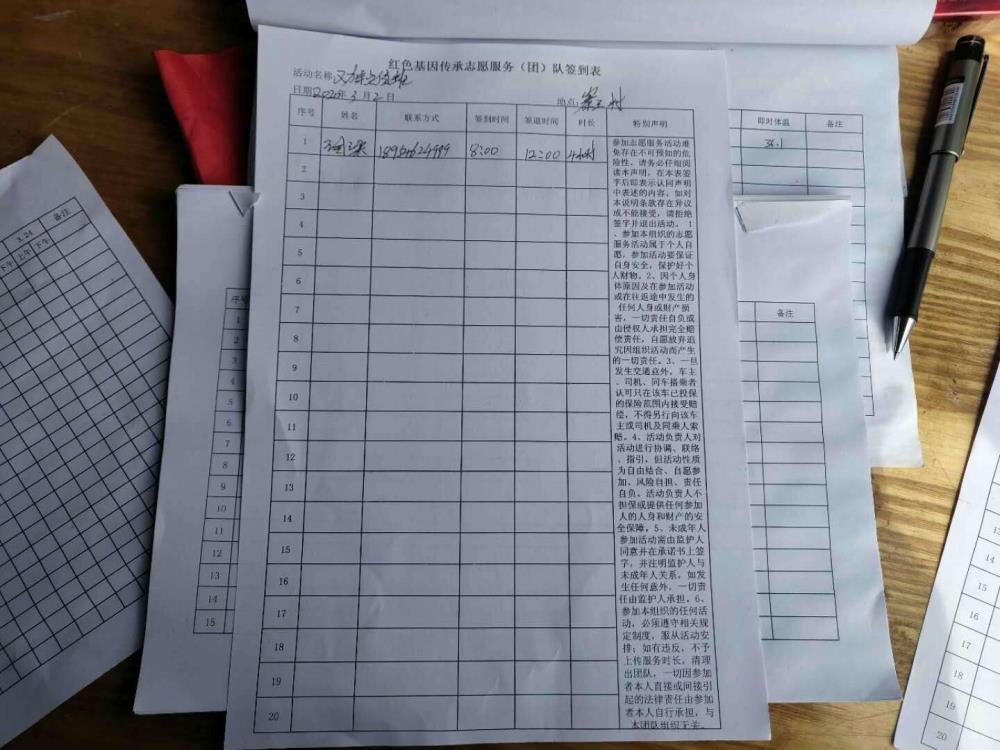 红色基因传承志愿服务（团）队签到表
活动名称
日期2020年3月2日
地点: 村
序号 姓名 联系方式 签到时间 签退时间 时长 特别声明
1 8:00 12:00 4小时
2
3
4
5
6
7
8
9
10
11
12
13
14
15
16
17
18
19
20
参加志愿服务活动难
免存在不可预知的危
险性，请务必仔细阅
读本声明，在本表签
字后即表示认同声明
中表述的内容。如对
本说明条款存在异议
或不能接受，请拒绝
签字并退出活动。1
、参加本组织的志愿
服务活动属于个人自
愿，参加活动要保证
自身安全，保护好个
人财物。2、因个人身
体原因及在参加活动
或在往返途中发生的
任何人身或财产损
害，一切责任自负或
由侵权人承担完全赔
偿责任，自愿放弃追
究因组织活动而产生
的一切责任。3、一旦
发生交通意外，车主
、司机、同车搭乘者
认可只在该车已投保
的保险范围内接受赔
偿，不得另行向该车
主或司机及同乘人索
赔。4、活动负责人对
活动进行协调、联络
、指引，但活动性质
为自由结合、自愿参
加、风险自担、责任
自负。活动负责人不
担保或提供任何参加
人的人身和财产的安
全保障。5、未成年人
参加活动需由监护人
同意并在承诺书上签
字，并注明监护人与
未成年人关系，如发
生任何意外，一切责
任由监护人承担。6、
参加本组织的任何活
动，必须遵守相关规
定制度，服从活动安
排；如有违反，不予
上传服务时长，清理
出团队，一切因参加
者本人直接或间接引
起的法律责任由参加
者本人自行承担，与
本团队组织无关。
即时体温 备注
36.1
备注
3.24 备注
下午 上午 下午
序号
1
2
3
4
5
6
7
8
9
10
11
12
13
14
15
13
14
15
16
17
18
19
20